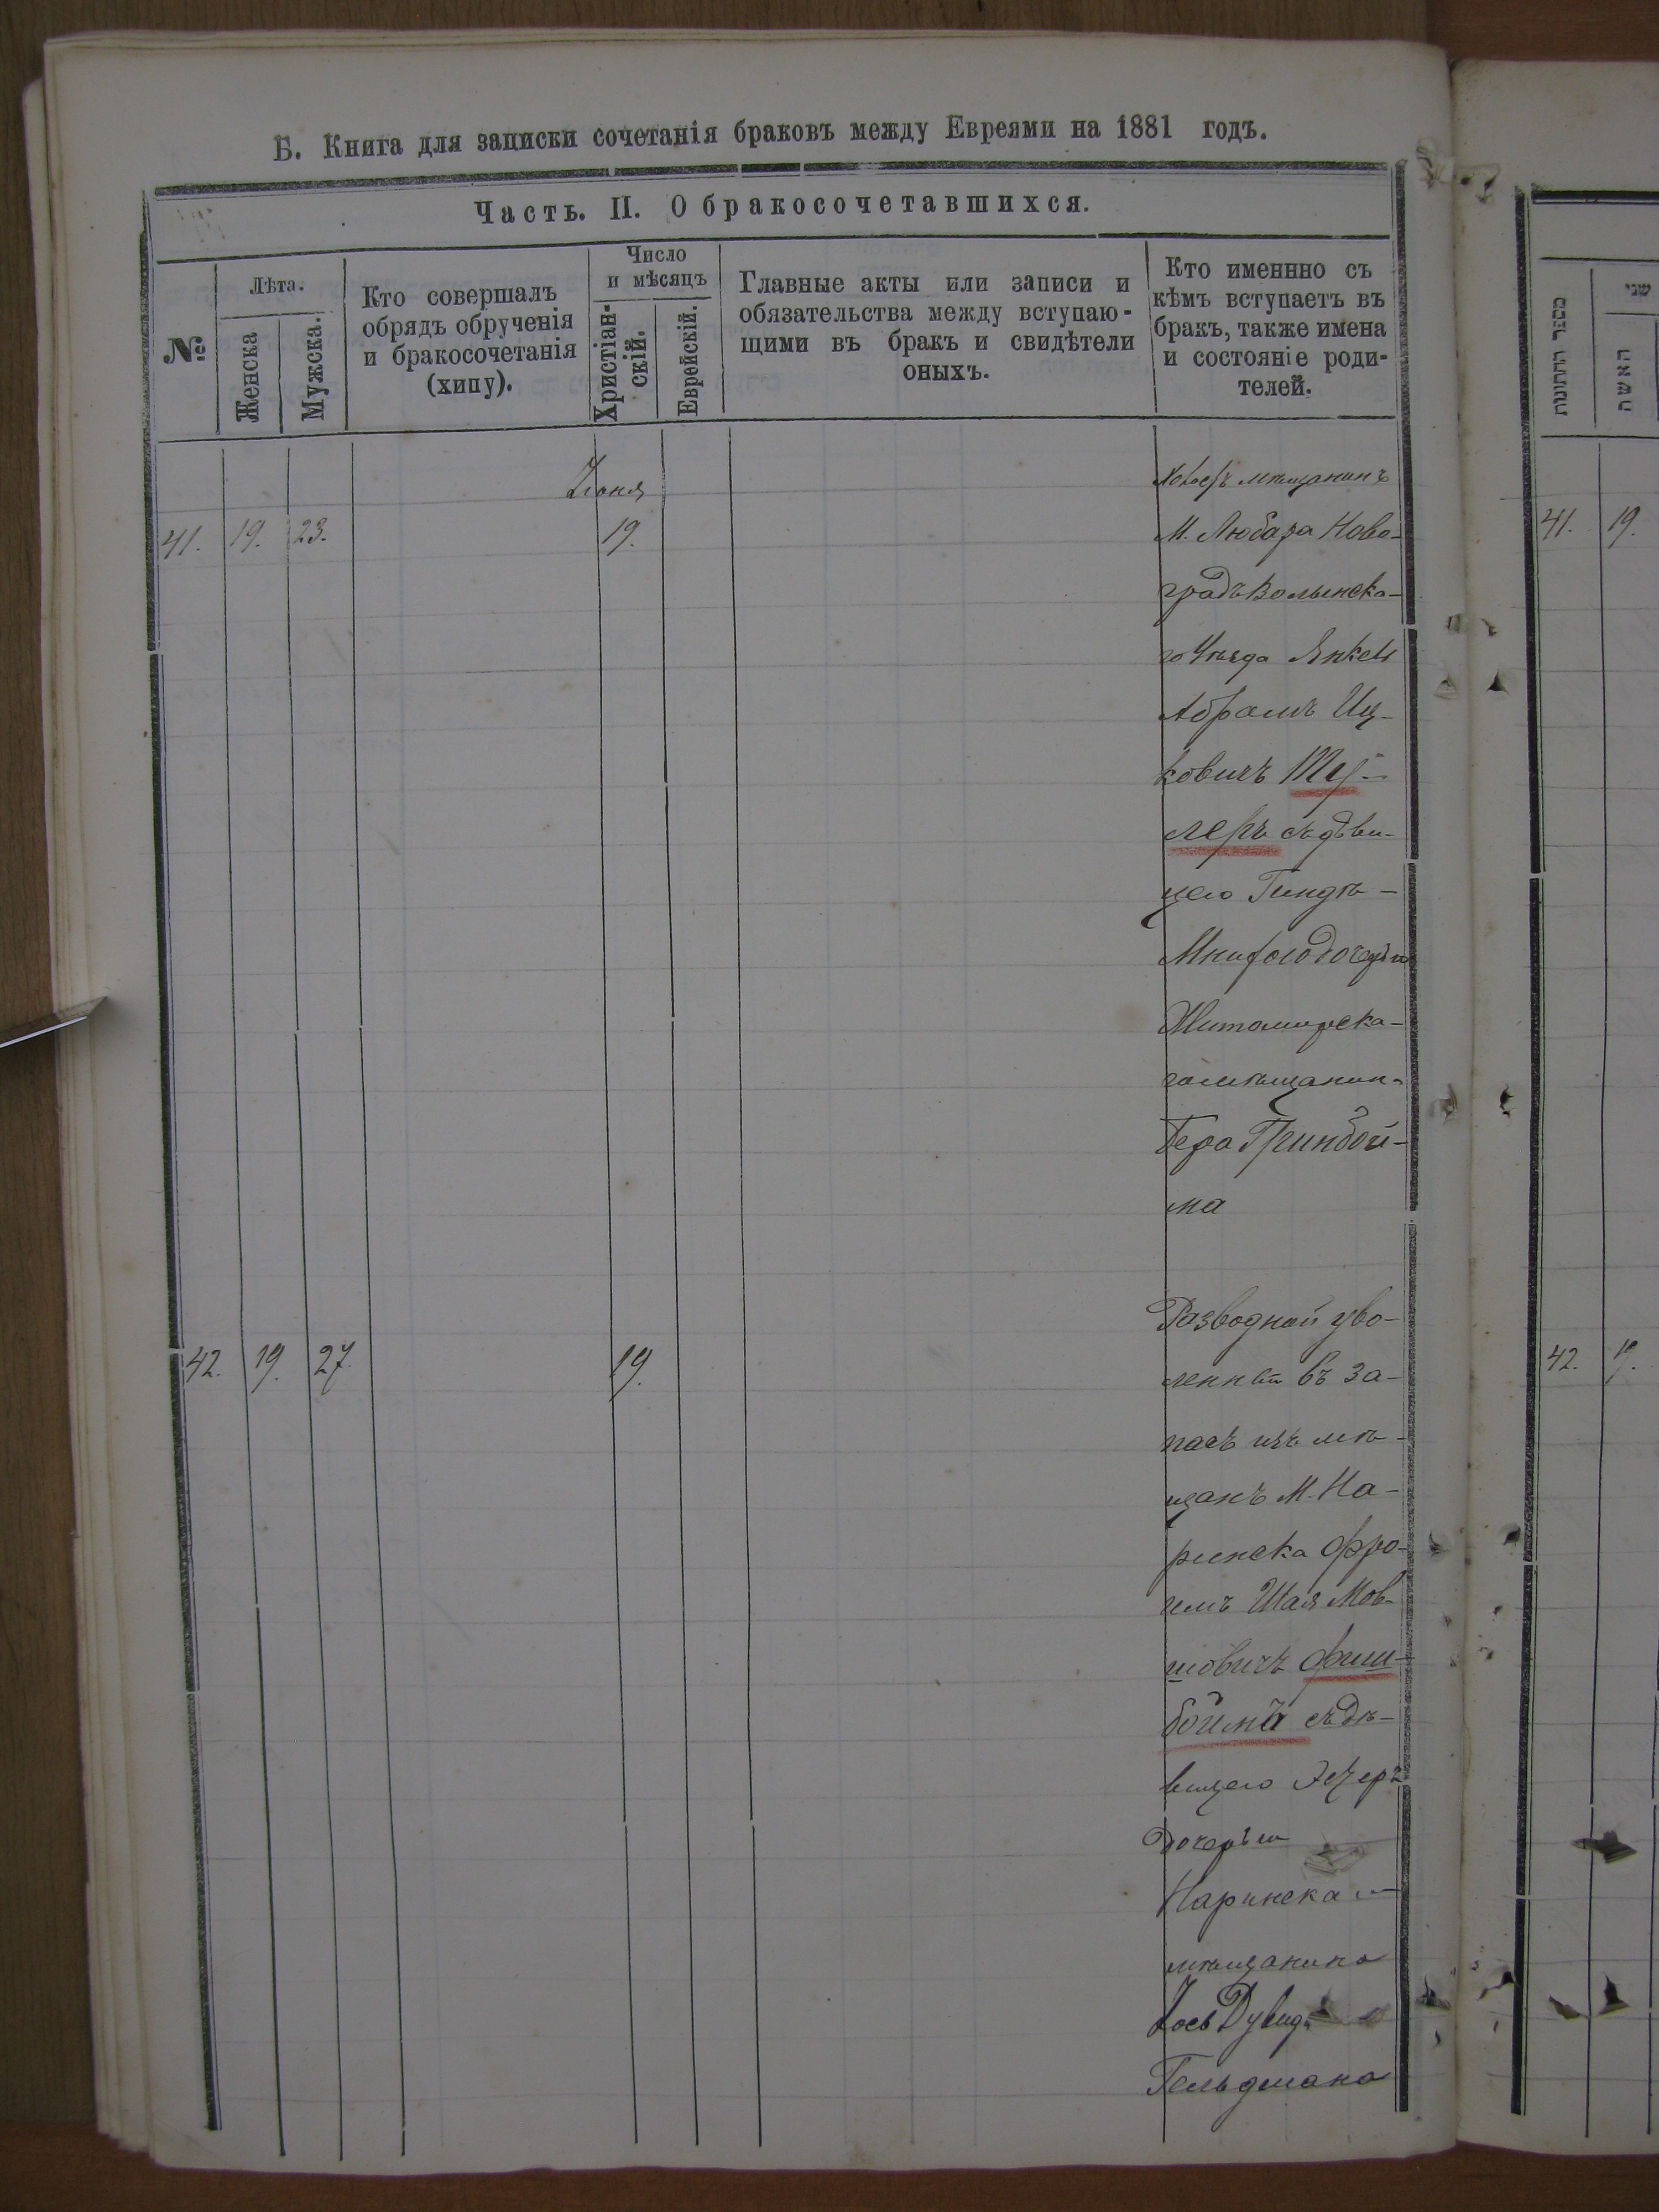 Б. Книга для записки сочетанія браковъ между Евреями на 1881 годъ.
Часть. II. О бракосочетавшихся.
№
Лѣта.
Женска
Мужска.
Кто совершалъ
обрядъ обрученія
и бракосочетанія
(хипу).
Число
и мѣсяцъ
Христіан-
скій.
Еврейскій.
Главные акты или записи и
обязательства между вступаю-
щими въ бракъ и свидѣтели
оныхъ.
Кто именнно съ
кѣмъ вступаетъ въ
бракъ, также имена
и состояніе роди-
телей.
Іюня
41. 19. 23. 19.
мѣщанинъ
М. Любара Ново-
градъ Волынска-
го Уѣзда Янкель
Абрамъ Иц-
ковичъ
леръ съ дѣви-
цею Гиндѣ-
дочерью
Житомирска-
го мѣщанина
Бера Гринбой-
ма
42. 19. 27. 19.
Разводной уво-
ленный въ за-
пасъ изъ мѣ-
щанъ М. На-
ринска Фро-
имъ Шая Мов-
шовичъ Фиш-
боймъ съ дѣ-
вицею
дочерью
Наринска
мѣщанина
Іось Дувид
Гельдмана
מספר החתונות
שני
האשה
41. 19.
42. 19.